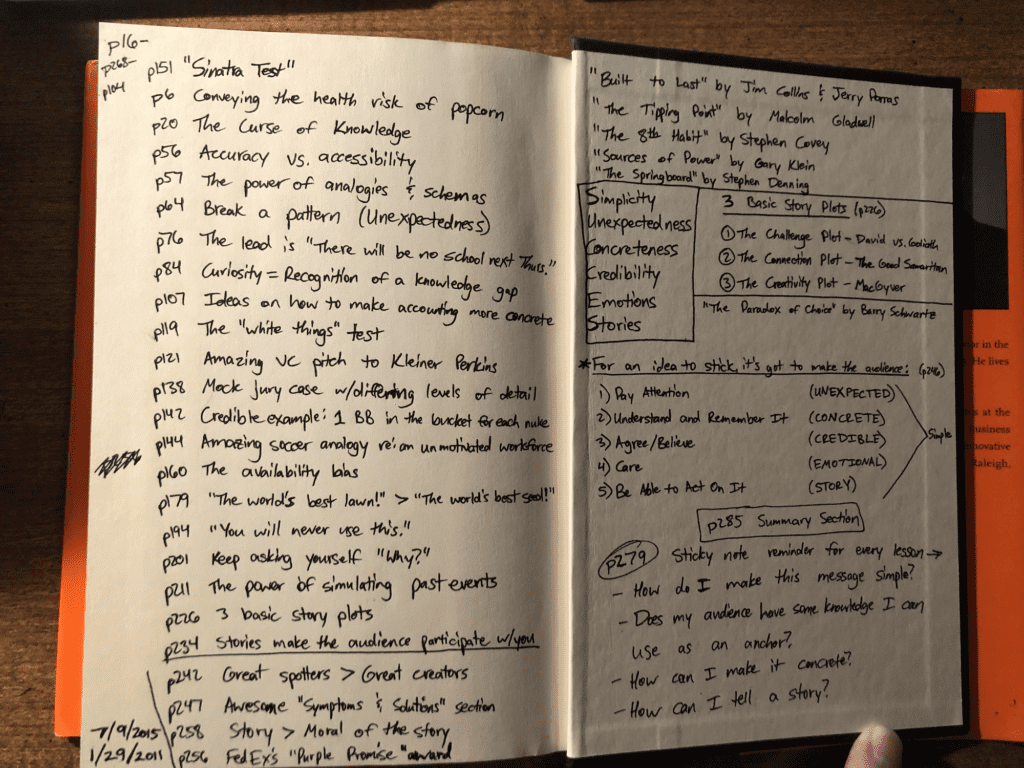 p16-
p268-
p104
p151 "Sinatra Test"
p6 Conveying the health risk of popcorn
p20 The Curse of Knowledge
p56 Accuracy vs. accessibility
p57 The power of analogies & schemas
p64 Break a pattern (Unexpectedness)
p76 The lead is "There will be no school next Thurs."
p84 Curiosity = Recognition of a knowledge gap
p107 Ideas on how to make accounting more concrete
p119 The "white things" test
p121 Amazing VC pitch to Kleiner Perkins
p138 Mock jury case w/differing levels of detail
p142 Credible example: 1 BB in the bucket for each nuke
p144 Amazing soccer analogy re: an unmotivated workforce
p160 The availability bias
p179 "The world's best lawn!" > "The world's best seed!"
p194 "You will never use this."
p201 Keep asking yourself "Why?"
p211 The power of simulating past events
p226 3 basic story plots
p234 Stories make the audience participate w/you
p242 Great spotters > Great creators
p247 Awesome "Symptoms & Solutions" section
7/9/2015 p258 Story > Moral of the story
1/29/2011 p256 FedEx's "Purple Promise" award
"Built to Last" by Jim Collins & Jerry Porras
"The Tipping Point" by Malcolm Gladwell
"The 8th Habit" by Stephen Covey
"Sources of Power" by Gary Klein
"The Springboard" by Stephen Denning
Simplicity
Unexpectedness
Concreteness
Credibility
Emotions
Stories
3 Basic Story Plots (p226)
① The Challenge Plot - David vs. Goliath
② The Connection Plot - The Good Samaritan
③ The Creativity Plot - MacGyver
"The Paradox of Choice" by Barry Schwartz
*For an idea to stick, it's got to make the audience: (p246)
1) Pay Attention (UNEXPECTED)
2) Understand and Remember It (CONCRETE)
3) Agree/Believe (CREDIBLE)
4) Care (EMOTIONAL)
5) Be Able to Act On It (STORY)
Simple
p285 Summary Section
p279 Sticky note reminder for every lesson →
- How do I make this message simple?
- Does my audience have some knowledge I can
use as an anchor?
- How can I make it concrete?
- How can I tell a story?
in the
He lives
at the
business
Raleigh,